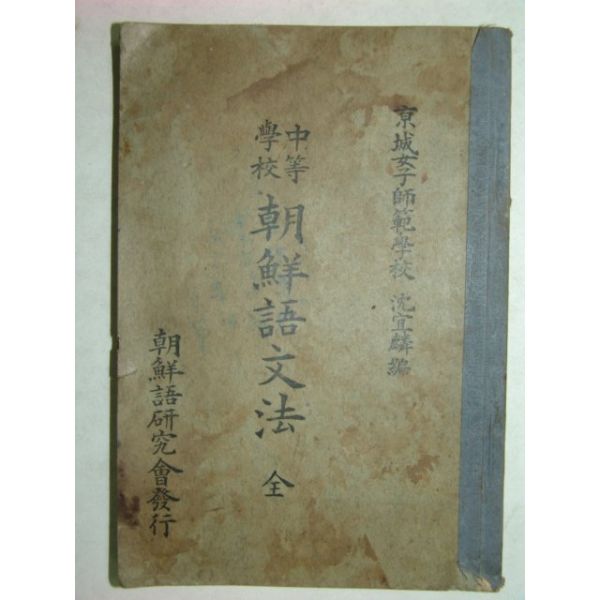 京城女子師範學校 沈宜麟編
中等學校 朝鮮語文法 全
朝鮮語研究會發行